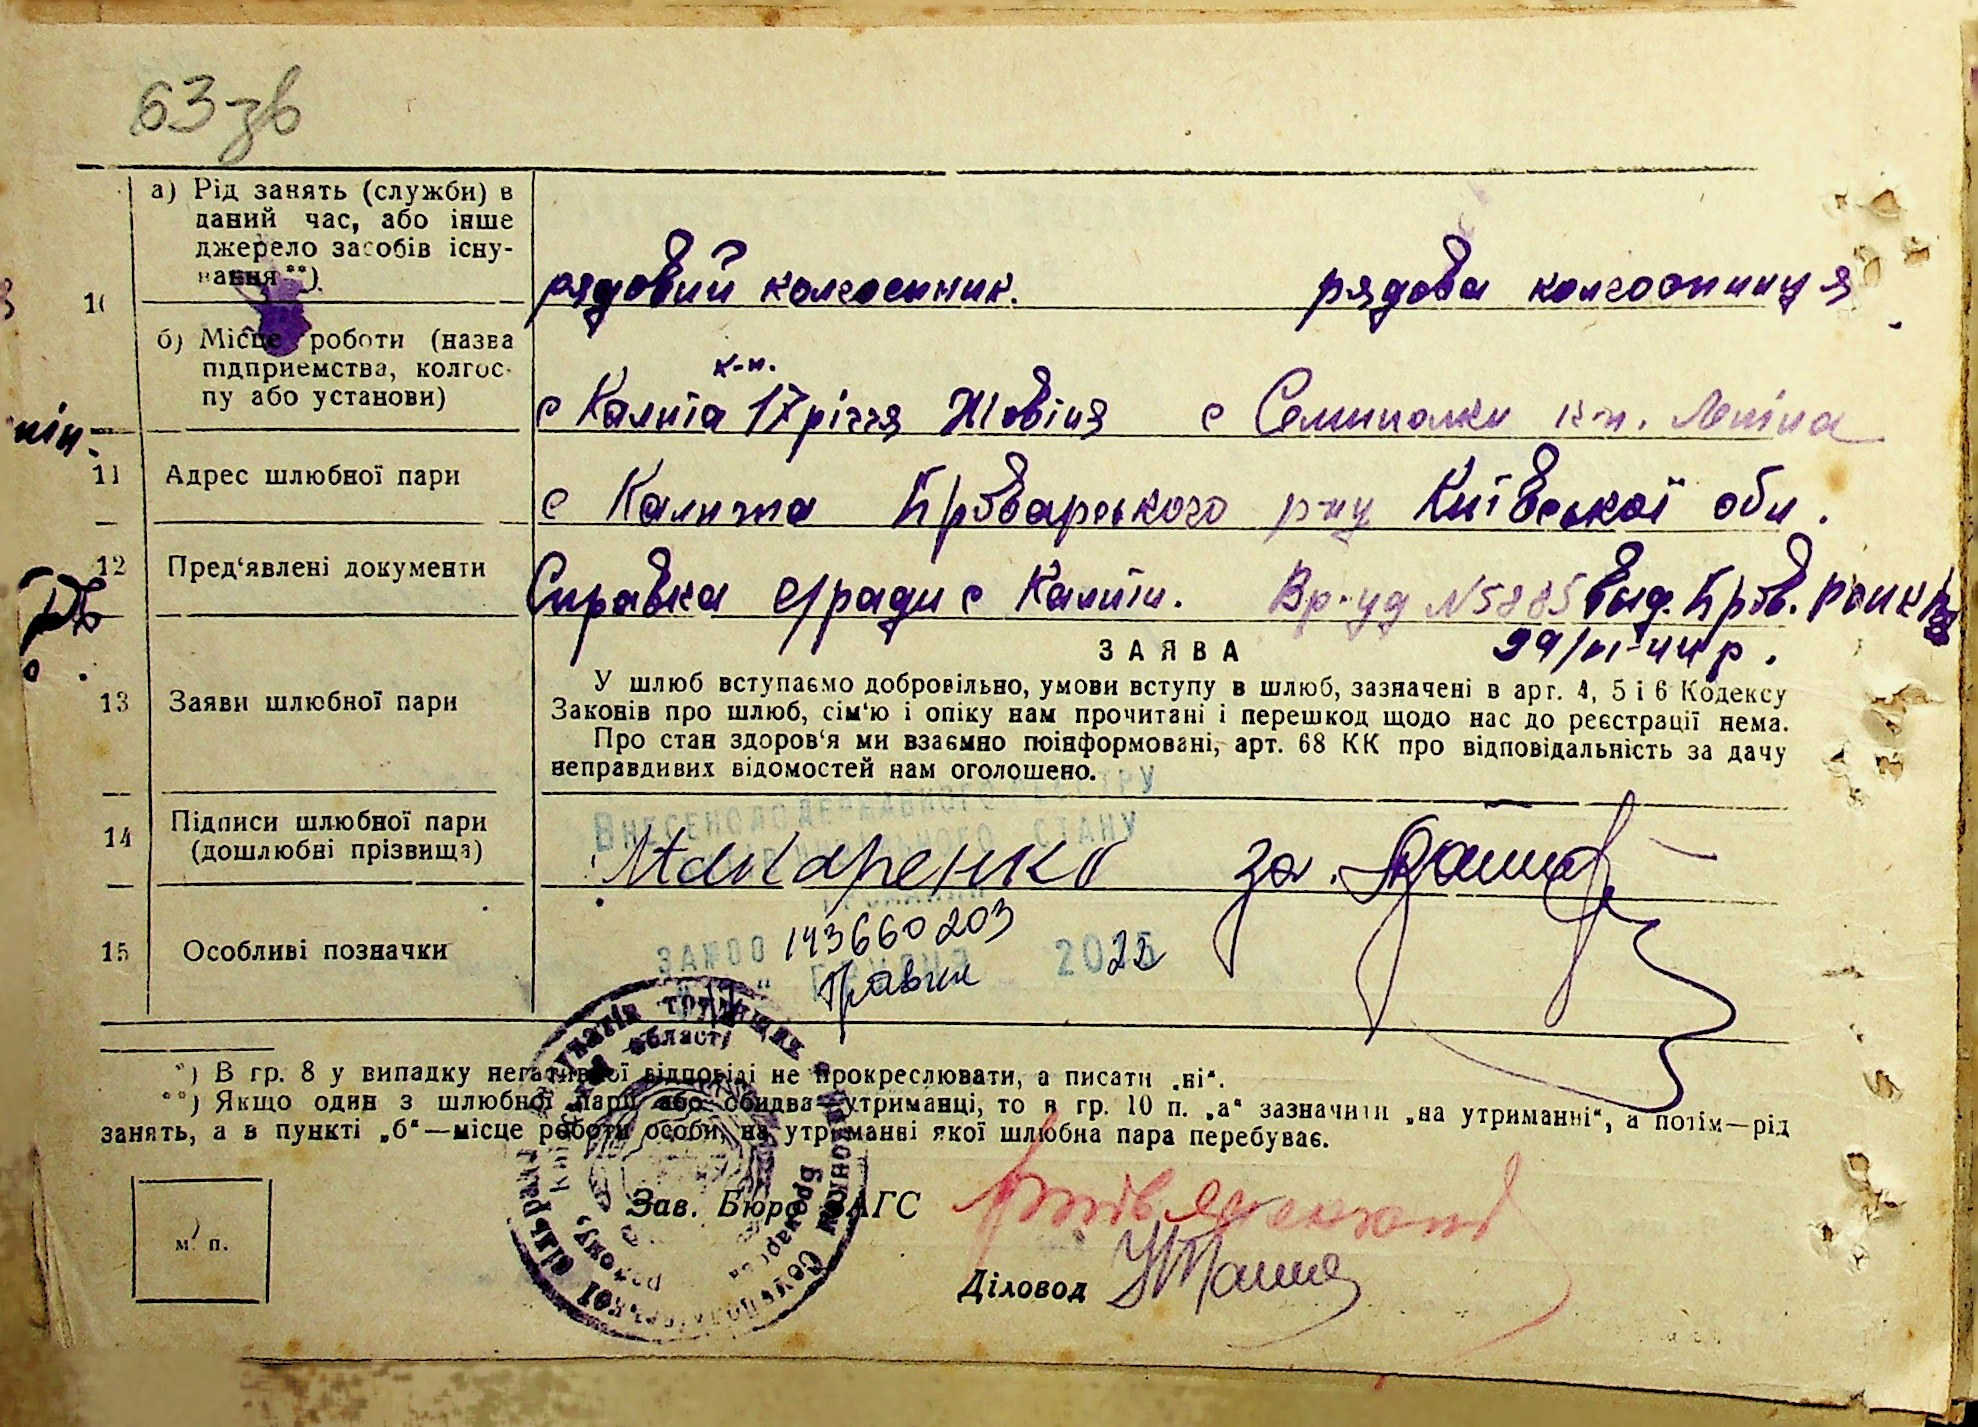 63 зв
а) Рід занять (служби) в
даний час, або інше
джерело засобів існу-
вання **)
рядовий колгоспник. рядова колгоспниця
10
б) Місце роботи (назва
підприємства, колгос-
пу або установи)
к-п.
с Калита 17 річчя Жовтня с Семиполки к-п. Леніна
11 Адрес шлюбної пари
с Калита Броварського р-ну Київської обл.
12 Пред‘явлені документи
Справка с/ради с Калити. Вр-уд N 5885 выд. Бров.
р.
13 Заяви шлюбної пари
ЗАЯВА
У шлюб вступаємо добровільно, умови вступу в шлюб, зазначені в арт. 4, 5 і 6 Кодексу
Законів про шлюб, сім‘ю і опіку нам прочитані і перешкод щодо нас до реєстрації нема.
Про стан здоров‘я ми взаємно поінформовані, арт. 68 КК про відповідальність за дачу
неправдивих відомостей нам оголошено.
ВНЕСЕНО ДО ДЕРЖАВНОГО РЕЄСТРУ
СТАНУ
ГРОМАДЯН
14 Підписи шлюбної пари
(дошлюбні прізвища)
Макаренко за
15 Особливі позначки
ЗА №00 143660203
травня 2022
*) В гр. 8 у випадку негативної відповіді не прокреслювати, а писати „ні“.
**) Якщо один з шлюбної пари або обидва—утриманці, то в гр. 10 п. „а“ зазначити „на утриманні“, а потім—рід
занять, а в пункті „б“—місце роботи особи, на утриманні якої шлюбна пара перебуває.
м. п.
Зав. Бюро ЗАГС
Діловод